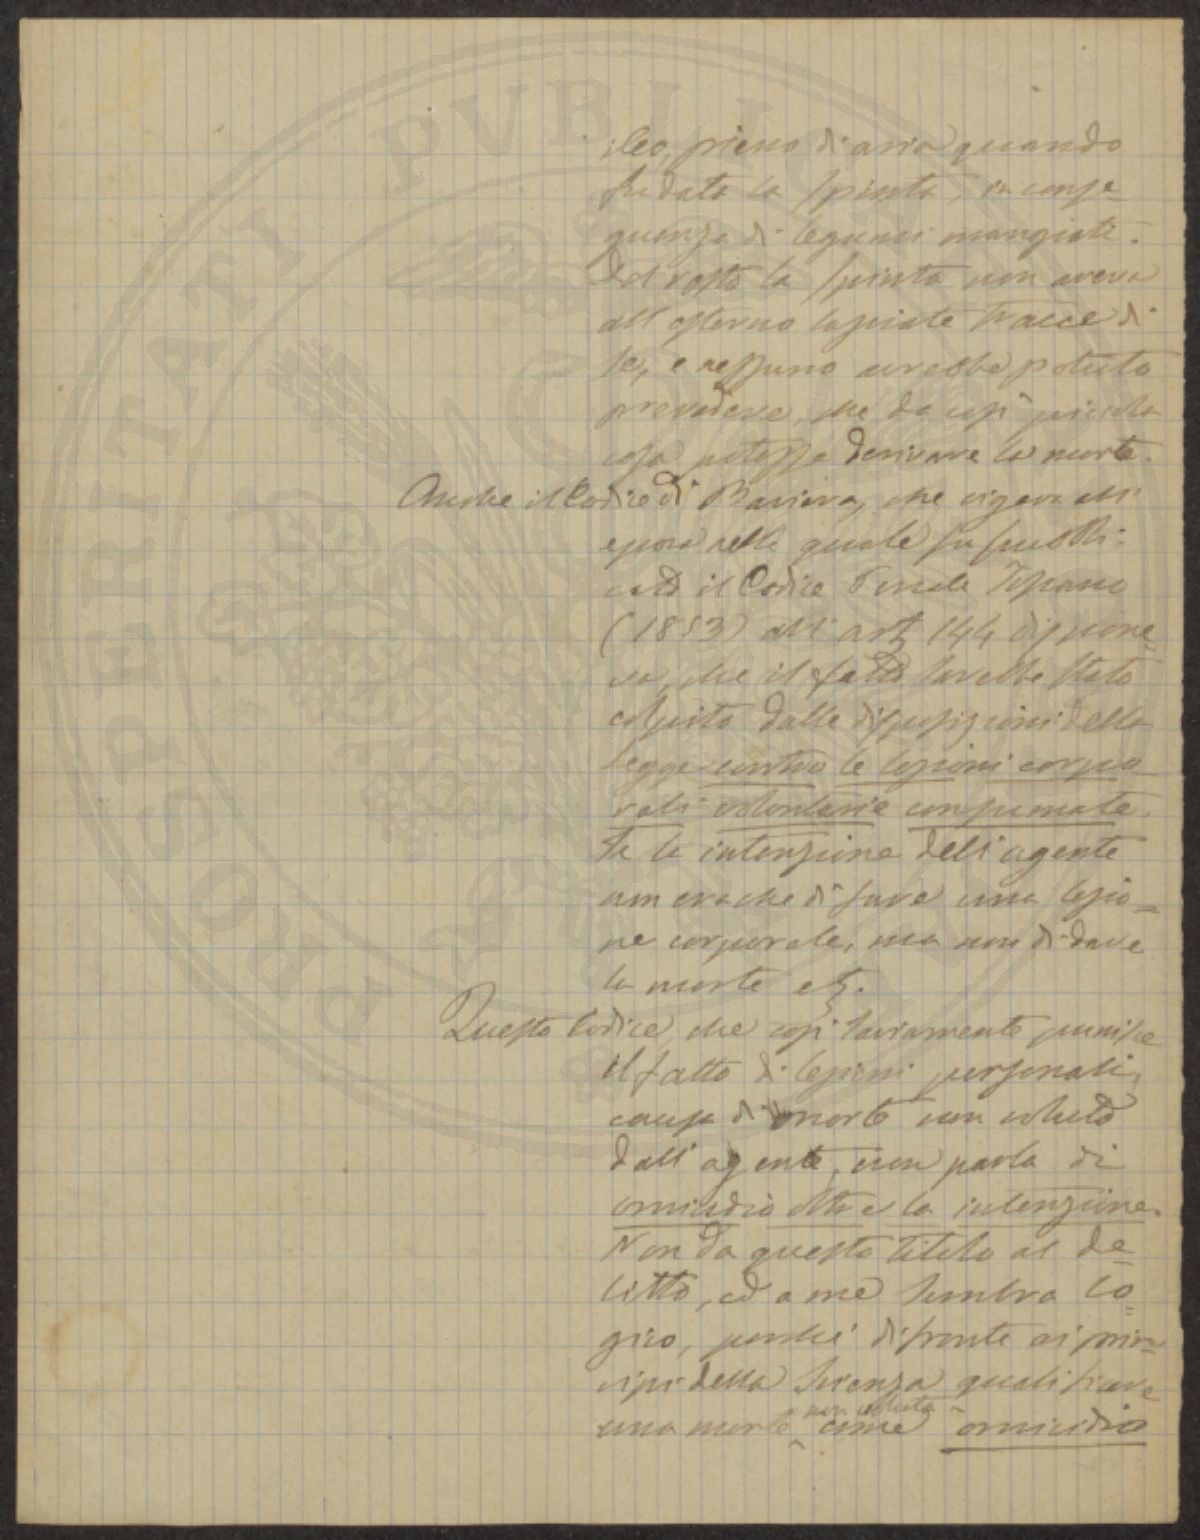 ileo, pieno di aria quando
fu data la spinta, in conse-
guenza di legumi mangiati.
Del resto la spinta non aveva
all'esterno lasciate tracce di
se, e nessuno avrebbe potuto
prevedere, che da così piccola
cosa potesse derivare la morte.
Anche il Codice di Baviera, che vigeva all'
epoca nella quale fu pubbli-
cato il Codice Penale Toscano
(1853) all'art. 144 dispone
va, che il fatto sarebbe stato
colpito dalle disposizioni della
legge contro le lesioni corpo
rali volontarie consumate.
se la intenzione dell'agente
non era che di fare una lesio=
ne corporale, ma non di dare
la morte etc.
Questo Codice, che così saviamente punisce
il fatto di lesioni personali,
causa di morte non voluta
dall'agente, non parla di
omicidio oltre la intenzione.
Non da questo titolo al de=
litto, ed a me sembra lo=
gico, perché di fronte ai prin=
cipi della Scienza qualificare
una morte non voluta come omicidio
PROSPERITATI PUBLICAE